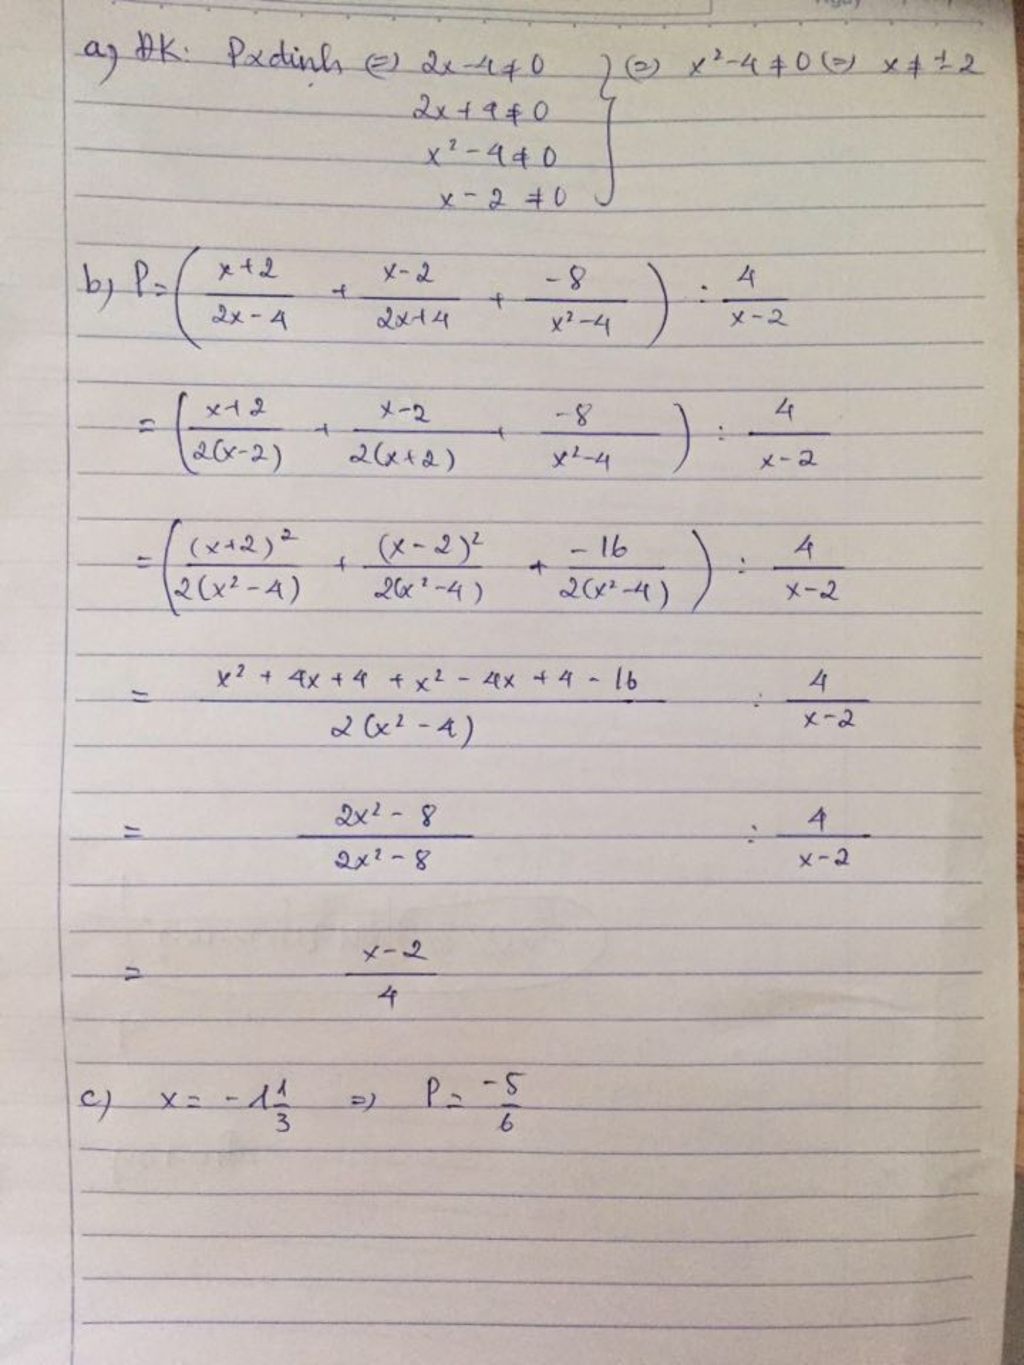 a) ĐK: P xđịnh <=> 2x-4≠0 } <=> x²-4≠0 <=> x≠±2
2x+4≠0
x²-4≠0
x-2≠0
b) P = ( (x+2)/(2x-4) + (x-2)/(2x+4) + (-8)/(x²-4) ) : 4/(x-2)
= ( (x+2)/(2(x-2)) + (x-2)/(2(x+2)) + (-8)/(x²-4) ) : 4/(x-2)
= ( (x+2)²/(2(x²-4)) + (x-2)²/(2(x²-4)) + (-16)/(2(x²-4)) ) : 4/(x-2)
= (x²+4x+4+x²-4x+4-16)/(2(x²-4)) : 4/(x-2)
= (2x²-8)/(2x²-8) : 4/(x-2)
= (x-2)/4
c) x = -1 1/3 => P = -5/6